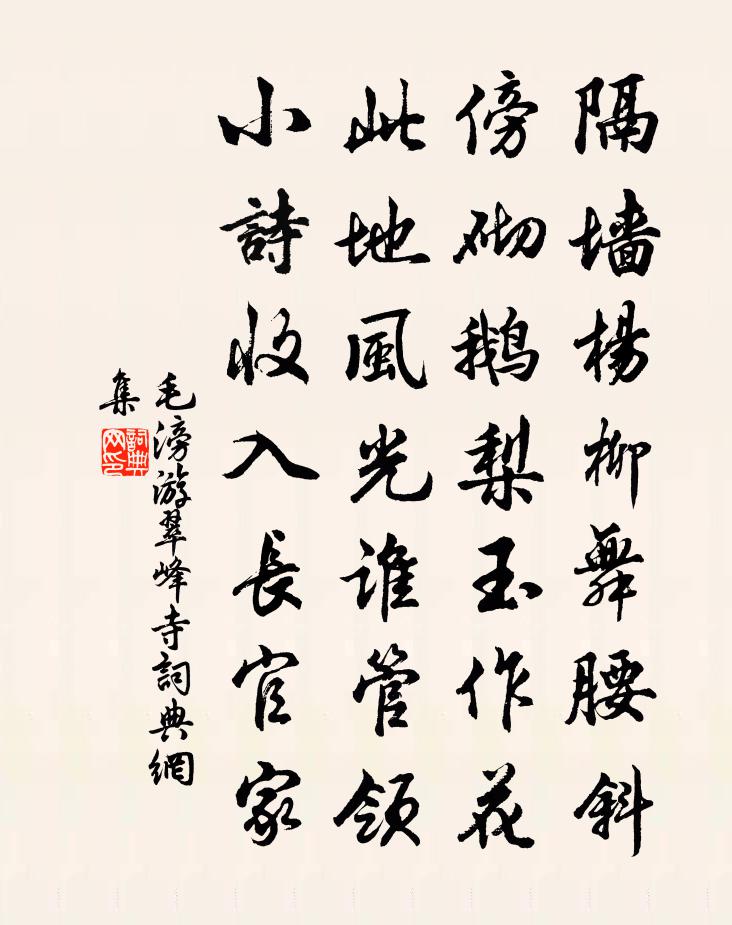 隔墙楊柳舞腰斜
傍砌鹅梨玉作花
此地風光谁管領
小詩收入長官家
毛滂游翠峰寺詞典網
集
詞典
网印